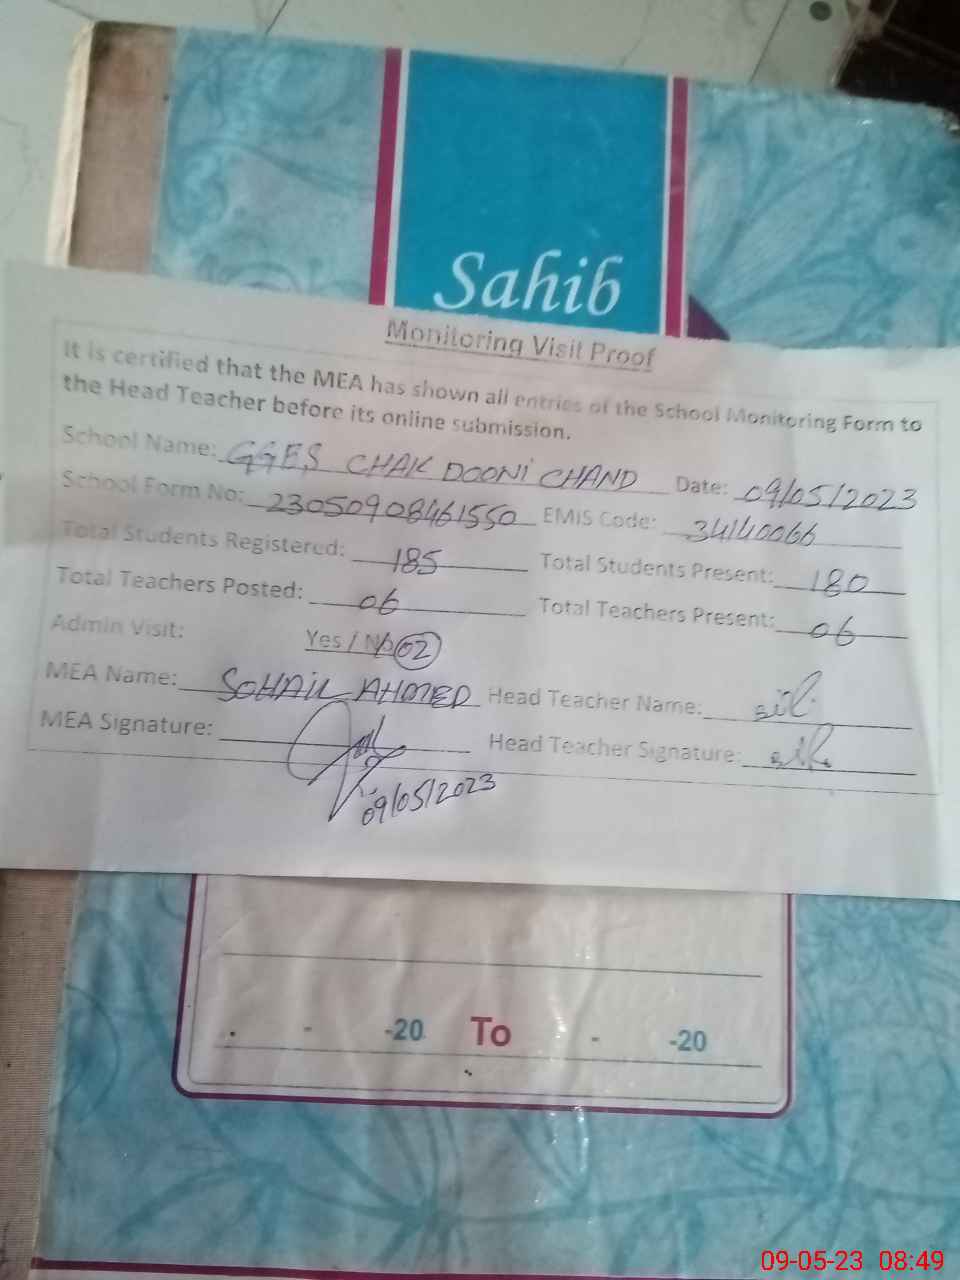 Sahib
Monitoring Visit Proof
It is certified that the MEA has shown all entries of the School Monitoring Form to
the Head Teacher before its online submission.
School Name: GGES CHAK DOONI CHAND Date: 09/05/2023
School Form No: 23050908461550 EMIS Code: 34140066
Total Students Registered: 185 Total Students Present: 180
Total Teachers Posted: 06 Total Teachers Present: 06
Admin Visit: Yes / No 02
MEA Name: SOHAIL AHMED Head Teacher Name:
MEA Signature: Head Teacher Signature:
09/05/2023
- -20 To - -20
09-05-23 08:49